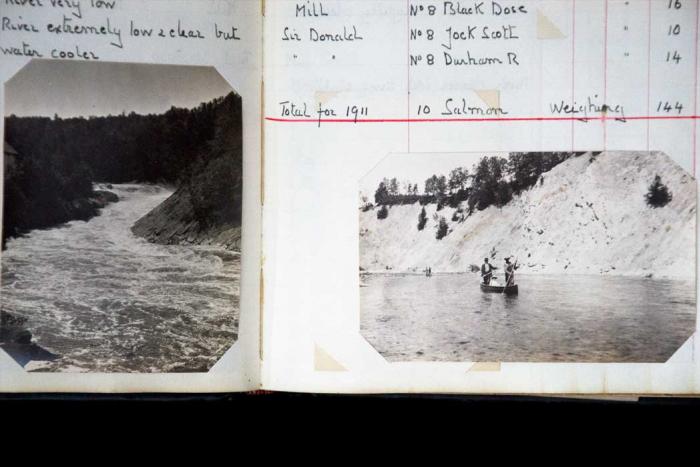 River very low
River extremely low & clear but
water cooler
Mill No 8 Black Dose " 16
Sir Donald No 8 Jock Scott " 10
" " No 8 Durham R " 14
Total for 1911 10 Salmon Weighing 144